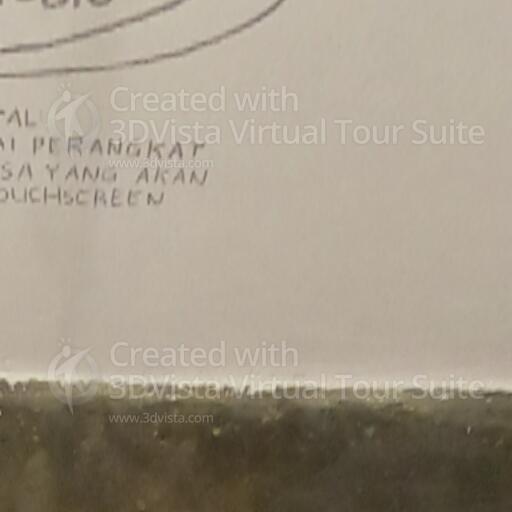 TAL
AI PERANGKAT
SA YANG AKAN
OUCHSCREEN
Created with
3DVista Virtual Tour Suite
www.3dvista.com
Created with
3DVista Virtual Tour Suite
www.3dvista.com